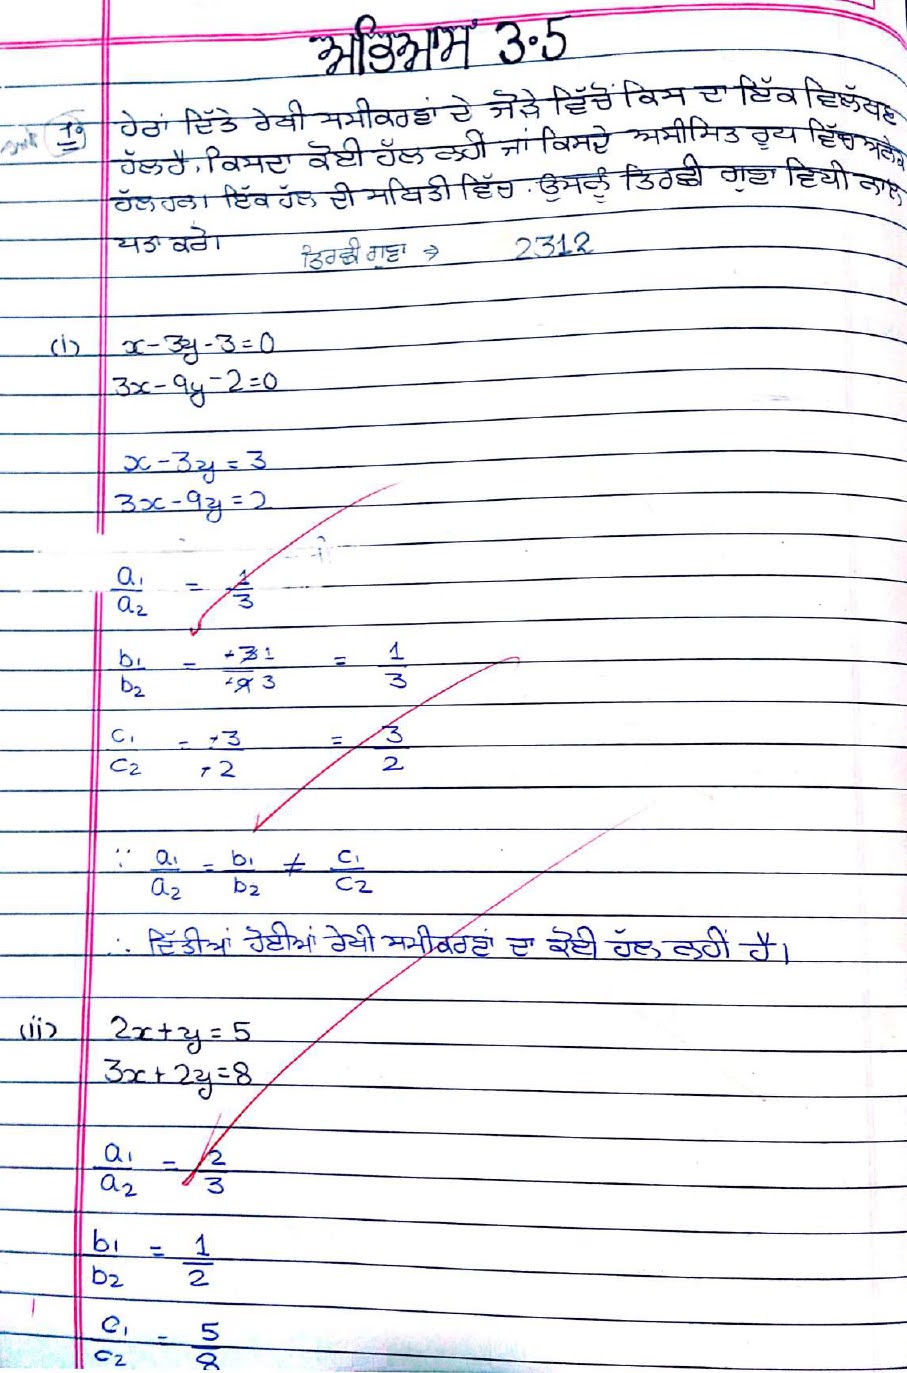 ਅਭਿਆਸ 3.5
1. ਹੇਠਾਂ ਦਿੱਤੇ ਰੇਖੀ ਸਮੀਕਰਣਾਂ ਦੇ ਜੋੜੇ ਵਿੱਚੋਂ ਕਿਸ ਦਾ ਇੱਕ ਵਿਲੱਖਣ
ਹੱਲ ਹੈ, ਕਿਸਦਾ ਕੋਈ ਹੱਲ ਨਹੀਂ ਜਾਂ ਕਿਸਦੇ ਅਸੀਮਿਤ ਰੂਪ ਵਿੱਚ ਅਨੇਕ
ਹੱਲ ਹਨ। ਇੱਕ ਹੱਲ ਦੀ ਸਥਿਤੀ ਵਿੱਚ, ਉਸਨੂੰ ਤਿਰਛੀ ਗੁਣਾ ਵਿਧੀ ਨਾਲ
ਪਤਾ ਕਰੋ। ਤਿਰਛੀ ਗੁਣਾ → 2312
(i) x-3y-3=0
3x-9y-2=0
x-3y=3
3x-9y=2
a₁/a₂ = 1/3
b₁/b₂ = -3 1/-9 3 = 1/3
c₁/c₂ = -3/-2 = 3/2
∵ a₁/a₂ = b₁/b₂ ≠ c₁/c₂
∴ ਦਿੱਤੀਆਂ ਹੋਈਆਂ ਰੇਖੀ ਸਮੀਕਰਣਾਂ ਦਾ ਕੋਈ ਹੱਲ ਨਹੀਂ ਹੈ।
(ii) 2x+y=5
3x+2y=8
a₁/a₂ = 2/3
b₁/b₂ = 1/2
c₁/c₂ = 5/8